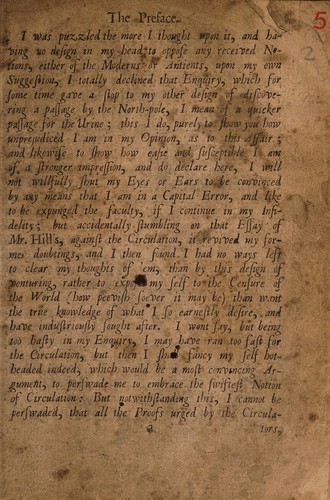 The Preface.
5
2
I was puzzled the more I thought upon it, and ha-
ving no design in my head to oppose any received No-
tions, either of the Moderns or Antients, upon my own
Suggestion, I totally declined that Enquiry, which for
some time gave a stop to my other design of discove-
ring a passage by the North-pole, I mean of a quicker
passage for the Urine; this I do, purely to show you how
unprejudiced I am in my Opinion, as to this affair;
and likewise to show how easie and susceptible I am
of a stronger impression, and do declare here, I will
not willfully shut my Eyes or Ears to be convinced
by any means that I am in a Capital Error, and like
to be expunged the faculty, if I continue in my Infi-
delity; but accidentally stumbling on that Essay of
Mr. Hill's, against the Circulation, it revived my for-
mer doubtings, and I then found I had no ways left
to clear my thoughts of 'em, than by this design of
venturing, rather to expose my self to the Censure of
the World (how peevish soever it may be) than want
the true knowledge of what I so earnestly desire, and
have industriously sought after. I wont say, but being
too hasty in my Enquiry, I may have ran too fast for
the Circulation, but then I shall fancy my self hot-
headed indeed, which would be a most convincing Ar-
gument, to perswade me to embrace the swiftest Notion
of Circulation: But notwithstanding this, I cannot be
perswaded, that all the Proofs urged by the Circula-
a tors,